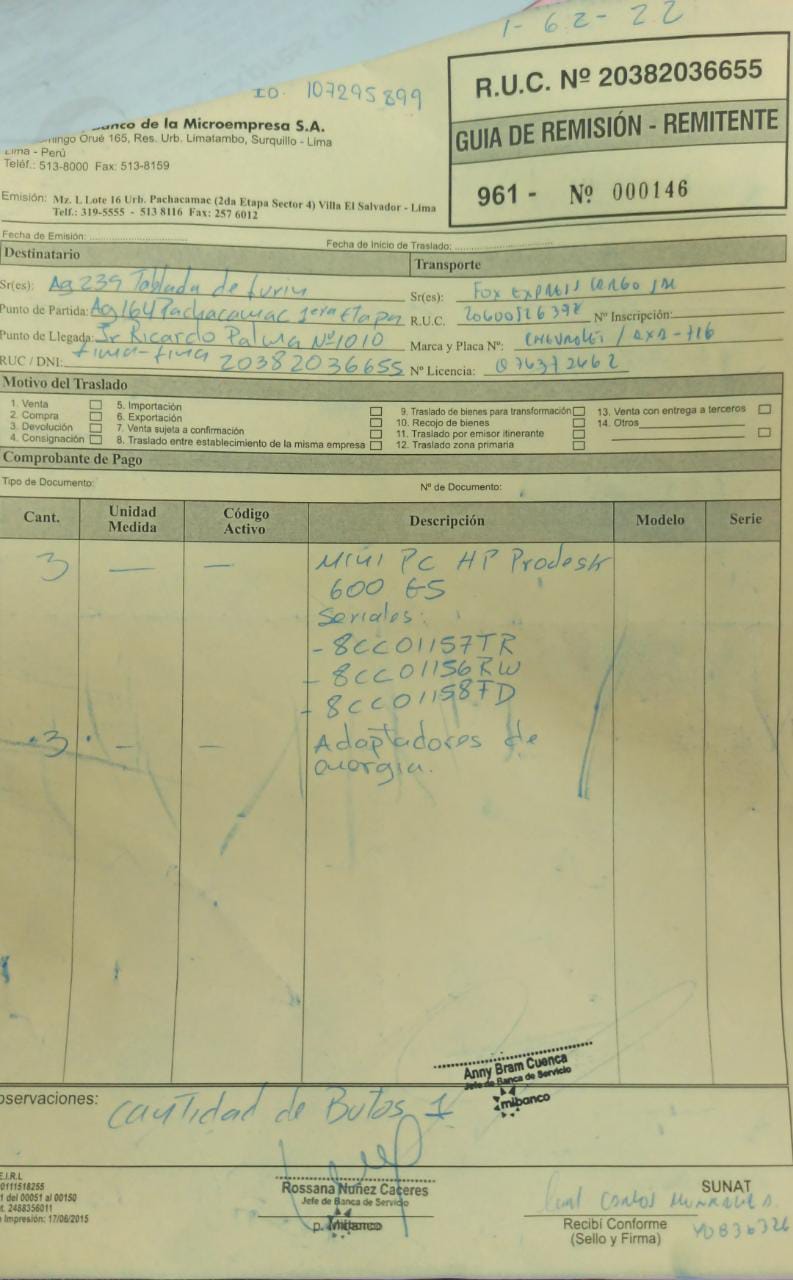 1-62-22
ID. 107295899
R.U.C. Nº 20382036655
GUIA DE REMISIÓN - REMITENTE
961 - Nº 000146
Banco de la Microempresa S.A.
Orué 165, Res. Urb. Limatambo, Surquillo - Lima
Lima - Perú
Teléf.: 513-8000 Fax: 513-8159
Emisión: Mz. L Lote 16 Urb. Pachacamac (2da Etapa Sector 4) Villa El Salvador - Lima
Telf.: 319-5555 - 513 8116 Fax: 257 6012
Fecha de Emisión:
Fecha de Inicio de Traslado:
Destinatario
Sr(es): Ag 239 Tablada de Lurin
Punto de Partida: Ag 164 Pachacamac 1era Etapa
Punto de Llegada: Jr Ricardo Palma Nº 1010
Lima-Lima
RUC / DNI: 20382036655
Transporte
Sr(es): Fox EXPRESS CARGO
R.U.C. Nº Inscripción:
Marca y Placa Nº: CHEVROLET /
Nº Licencia: Q76372662
Motivo del Traslado
1. Venta
2. Compra
3. Devolución
4. Consignación
5. Importación
6. Exportación
7. Venta sujeta a confirmación
8. Traslado entre establecimiento de la misma empresa
9. Traslado de bienes para transformación
10. Recojo de bienes
11. Traslado por emisor itinerante
12. Traslado zona primaria
13. Venta con entrega a terceros
14. Otros
Comprobante de Pago
Tipo de Documento:
Nº de Documento:
Cant. Unidad Medida Código Activo Descripción Modelo Serie
3 — — Mini PC HP Prodesk
600 G5
Seriales:
- 8CC01157TR
- 8CC01156RW
- 8CC01158FD
3 — — Adaptadores de
energia.
Anny Bram Cuenca
Jefe de Banca de Servicio
mibanco
Observaciones: Cantidad de Butos 1
E.I.R.L
0111518255
1 del 00051 al 00150
2488356011
Impresión: 17/06/2015
Rossana Nuñez Caceres
Jefe de Banca de Servicio
p. Mibanco
SUNAT
Carlos
Recibí Conforme
(Sello y Firma)